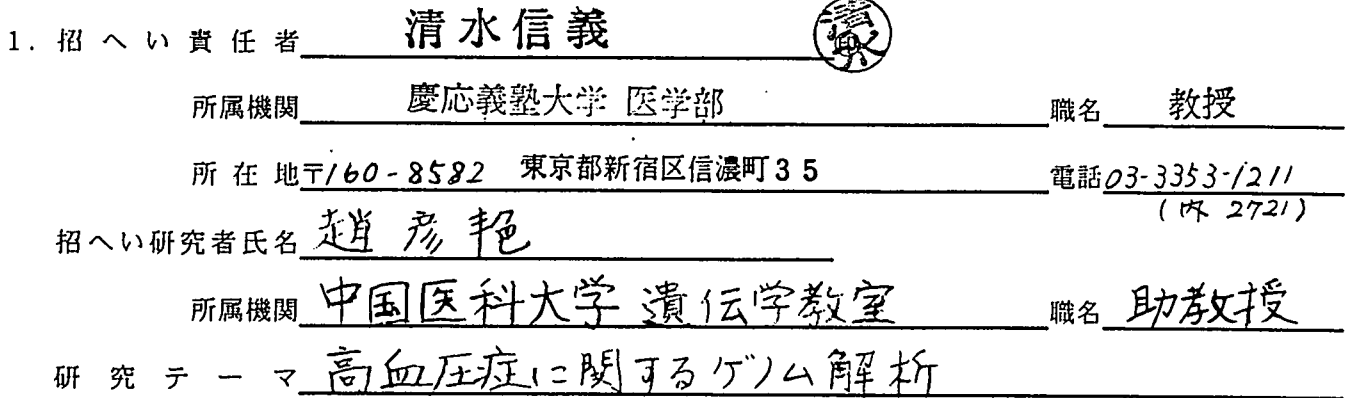 1. 招へい責任者 清水信義
所属機関 慶応義塾大学 医学部 職名 教授
所在地 〒160-8582 東京都新宿区信濃町35 電話 03-3353-1211
(内 2721)
招へい研究者氏名 趙彦艳
所属機関 中国医科大学 遺伝学教室 職名 助教授
研究テーマ 高血圧症に関するゲノム解析